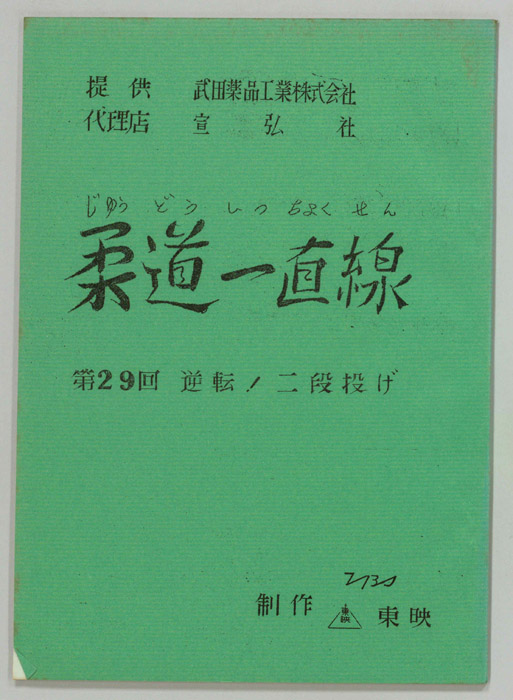 提供 武田薬品工業株式会社
代理店 宣弘社
じゅう どう いっ ちょく せん
柔道一直線
第29回 逆転! 二段投げ
TBS
制作 東映 東映